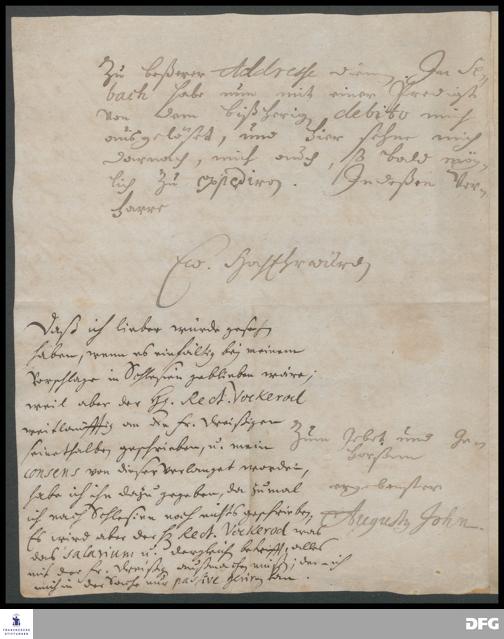 Zu beßerer Addresse dienen. In Se-
bach habe nun mit einer Predigt
von dem bißherigen debito mich
ausgelöset, und hier sehne mich
darnach, mich auch, so bald mög-
lich zu expediren. Indeßen ver-
harre
Ew. HochEhrwürden
Daß ich lieber würde gesehen
haben, wenn es einfältig bey meinem
Vorschlage in Schlesien geblieben wäre;
weil aber der H. Rect. Vockerod
weitläufftig an die Fr.
seinethalben geschrieben, u. mein
consens von dieser verlanget worden,
habe ich ihn dazu gegeben, da zumal
ich nach Schlesien noch nichts geschrieben.
Es wird aber der H. Rect. Vockerod was
das salarium u. dergleich betrifft, alles
mit der Fr. ausmachen müßen; denn ich
mich in der Sache nur passive
Zum Gebet und Ge-
horsam
ergebenster
Augustin John
FRANCKESCHE
STIFTUNGEN
DFG